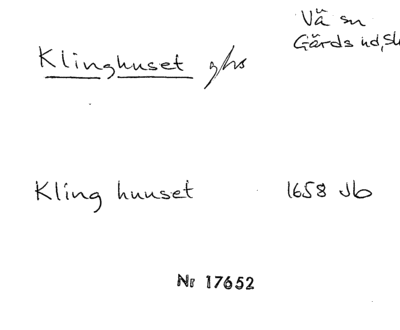 Vä sn
Gärds hd, Sk
Klinghuset ghs
Kling huuset 1658 Jb
Nr 17652